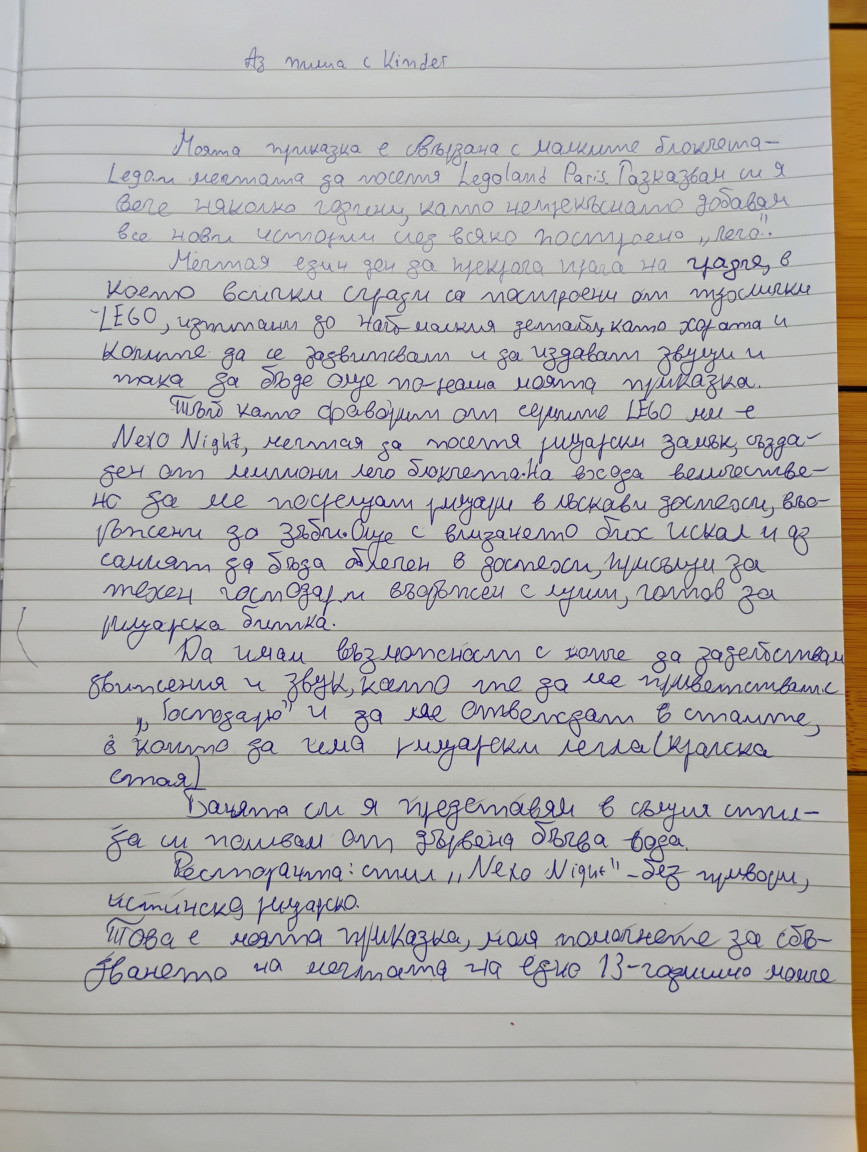 Аз пиша с Kinder
Моята приказка е свързана с малките блокчета-
Lego и мечтата да посетя Legoland Paris. Разказвам си я
вече няколко години, като непрекъснато добавям
все нови истории след всяко построено „лего“.
Мечтая един ден да прекрача прага на града, в
което всички сгради са построени от тухлички
LEGO, изпипани до най-малкия детайл, като хората и
колите да се задвижват и да издават звуци и
така да бъде още по-реална моята приказка.
Тъй като фаворит от сериите LEGO ми е
Nexo Night, мечтая да посетя рицарски замък, създа-
ден от милиони лего блокчета. На входа величестве-
но да ме посрещат рицари в лъскави доспехи, въо-
ръжени до зъби. Още с влизането бих искал и аз
самият да бъда облечен в доспехи, присъщи за
техен господар и въоръжен с щит, готов за
рицарска битка.
Да имам възможност с копче да задействам
движения и звук, като те да ме приветстват с
„Господарю“ и да ме отвеждат в стаите,
в които да има рицарски легла (кралска
стая)
Банята си я представям в същия стил-
да си поливам от дървена бъчва вода.
Ресторанта: стил „Nexo Night“ - без прибори,
истинско, рицарско.
Това е моята приказка, моля помогнете за сбъ-
дването на мечтата на едно 13-годишно момче